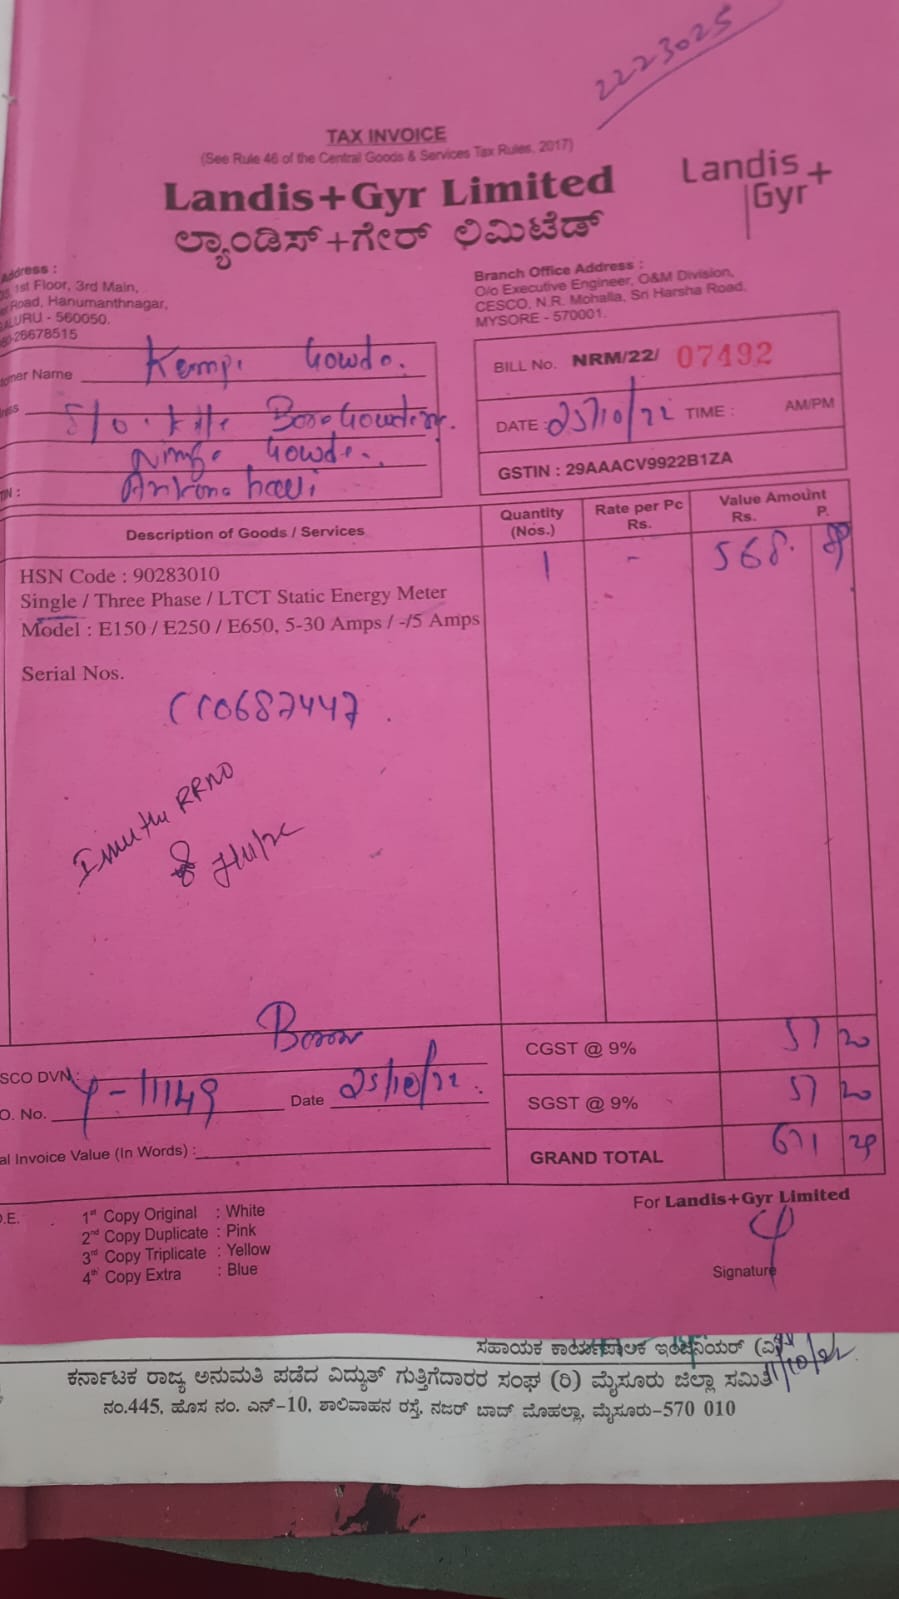 2223025
TAX INVOICE
(See Rule 46 of the Central Goods & Services Tax Rules, 2017)
Landis+Gyr Limited
Landis+
Gyr
ಲ್ಯಾಂಡಿಸ್+ಗೇರ್ ಲಿಮಿಟೆಡ್
Address :
1st Floor, 3rd Main,
Road, Hanumanthnagar,
URU - 560050.
-26678515
Branch Office Address :
O/o Executive Engineer, O&M Division,
CESCO, N.R. Mohalla, Sri Harsha Road,
MYSORE - 570001.
tomer Name
BILL No. NRM/22/ 07492
S/o.
DATE : 25/10/22 TIME : AM/PM
GSTIN : 29AAACV9922B1ZA
Description of Goods / Services
Quantity (Nos.)
Rate per Pc Rs.
Value Amount Rs. P.
HSN Code : 90283010
1 -
568.
Single / Three Phase / LTCT Static Energy Meter
Model : E150 / E250 / E650, 5-30 Amps / -/5 Amps
Serial Nos.
0687447
RRNO
CGST @ 9% 57 20
SCO DVN :
O. No. 11149 Date 25/10/22.
SGST @ 9% 57 20
al Invoice Value (In Words) :
GRAND TOTAL 671
For Landis+Gyr Limited
O.E.
1st Copy Original : White
2nd Copy Duplicate : Pink
3rd Copy Triplicate : Yellow
4th Copy Extra : Blue
Signature
ಸಹಾಯಕ ಕಾರ್ಯಪಾಲಕ ಇಂಜಿನಿಯರ್ (ವಿ)
ಕರ್ನಾಟಕ ರಾಜ್ಯ ಅನುಮತಿ ಪಡೆದ ವಿದ್ಯುತ್ ಗುತ್ತಿಗೆದಾರರ ಸಂಘ (ರಿ) ಮೈಸೂರು ಜಿಲ್ಲಾ ಸಮಿತಿ
ನಂ.445, ಹೊಸ ನಂ. ಎನ್-10, ಶಾಲಿವಾಹನ ರಸ್ತೆ, ನಜರ್ ಬಾದ್ ಮೊಹಲ್ಲಾ, ಮೈಸೂರು-570 010